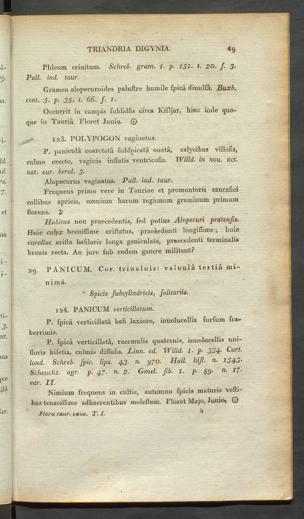 TRIANDRIA DIGYNIA. 49
Phleum crinitum. Schreb. gram. 1. p. 151. t. 20. f. 3.
Pall. ind. taur.
Gramen alopecuroides paluſtre humile ſpicâ diuulſâ. Buxb.
cent. 5. p. 35. t. 66. f. 1.
Occurrit in campis ſubſalſis circa Kiſljar, hinc inde quo-
que in Tauriâ. Floret Junio. ☉
123. POLYPOGON vaginatus.
P. paniculâ coarctatâ ſubſpicatâ ouatâ, calycibus villoſis,
culmo erecto, vaginis inflatis ventricoſis. Willd. in nou. act.
nat. cur. berol. 3.
Alopecurus vaginatus. Pall. ind. taur.
Frequens primo vere in Tauriae et promontorii caucaſici
collibus apricis, omnium harum regionum graminum primum
florens.
Habitus non praecedentis, ſed potius Alopecuri pratenſis.
Huic calyx breuiſſime ariſtatus, praecedenti longiſſime; huic
corollae ariſta baſilaris longa geniculata, praecedenti terminalis
breuis recta. An jure ſub eodem genere militant?
29. PANICUM. Cor. triualuis: valuulâ tertiâ mi-
nimâ.
* Spicis ſubcylindricis, ſolitariis.
124. PANICUM verticillatum.
P. ſpicâ verticillatâ baſi laxiore, inuolucellis ſurſum ſca-
berrimis.
P. ſpicâ verticillatâ, racemulis quaternis, inuolucellis uni-
floris biſetis, culmis diffuſis. Linn. ed. Willd. 1. p. 334. Curt.
lond. Schrad. ſpic. 
Scheuchz. agr. p. 47. n. 2. Gmel. ſib. 1. p. 89. n. 17.
var. II.
Nimium frequens in cultis, autumno ſpicis maturis veſti-
bus tenaciſſime adhaerentibus moleſtum. Floret Majo, Junio. ☉
Flora taur. cauc. T. I. 4